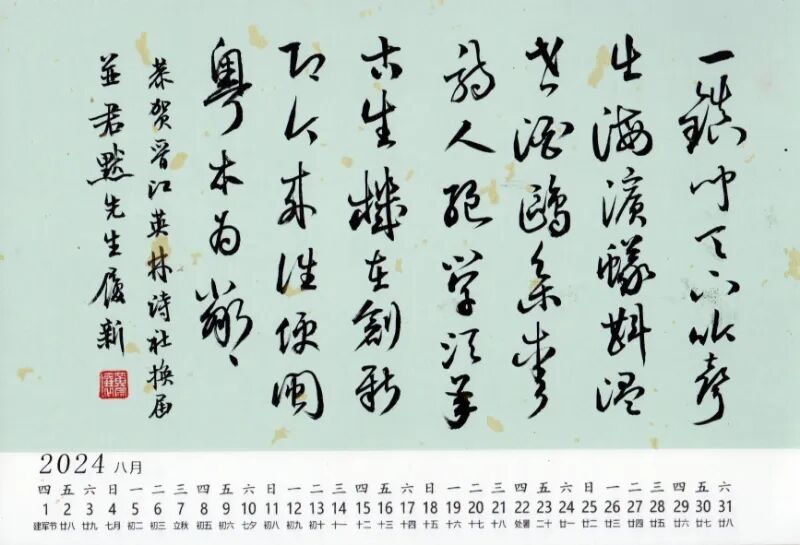 一鎮吟天下聲
生海濱蠔斟溫
老酒鷗集
詩人絕學須承
古生機在創新
即今來往便閩
粵本为鄰
恭賀晋江英林诗社换届
並君默先生履新
2024 八月
四 五 六 日 一 二 三 四 五 六 日 一 二 三 四 五 六 日 一 二 三 四 五 六 日 一 二 三 四 五 六
1 2 3 4 5 6 7 8 9 10 11 12 13 14 15 16 17 18 19 20 21 22 23 24 25 26 27 28 29 30 31
建军节 廿八 廿九 七月 初二 初三 立秋 初五 初六 七夕 初八 初九 初十 十一 十二 十三 十四 十五 十六 十七 十八 处暑 二十 廿一 廿二 廿三 廿四 廿五 廿六 廿七 廿八